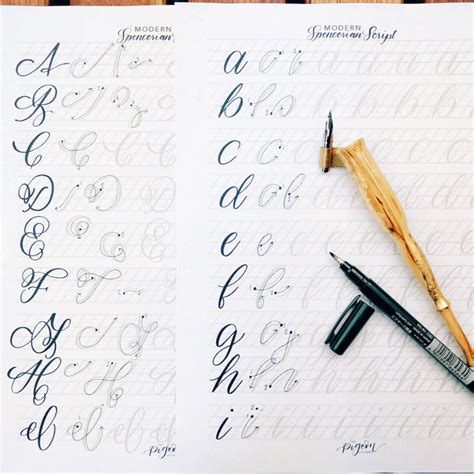 MODERN
Spencerian
A
B
C
D
E
F
G
H
Pigeon
MODERN
Spencerian Script
a
b
c
d
e
f
g
h
i
Pigeon